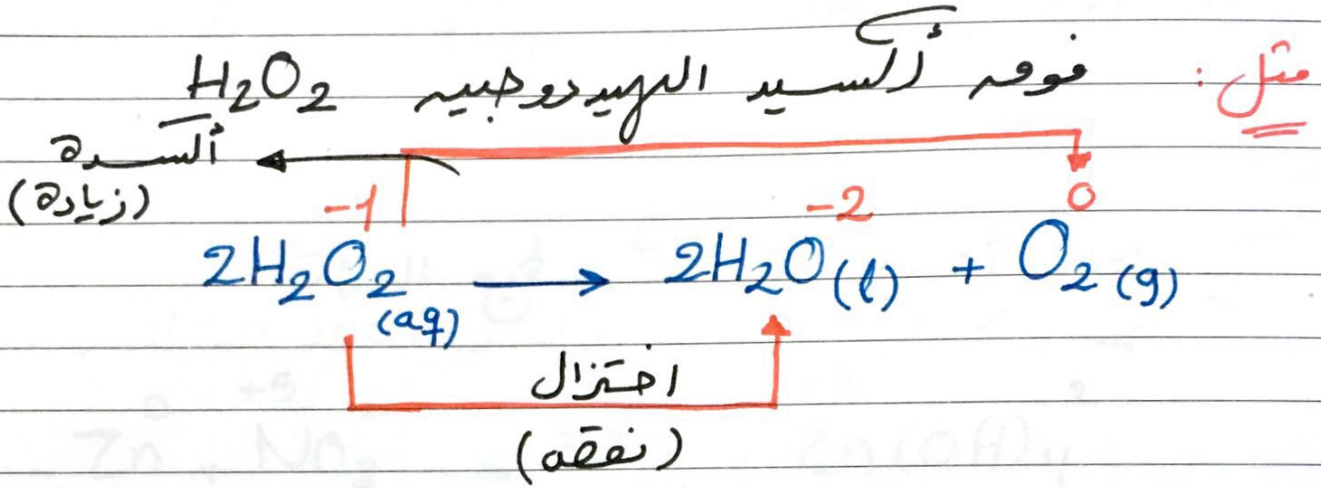 مثل : فوق أكسيد الهيدروجين H₂O₂
أكسدة
(زيادة)
-1 -2 0
2H₂O₂(aq) → 2H₂O(l) + O₂(g)
اختزال
(نقص)